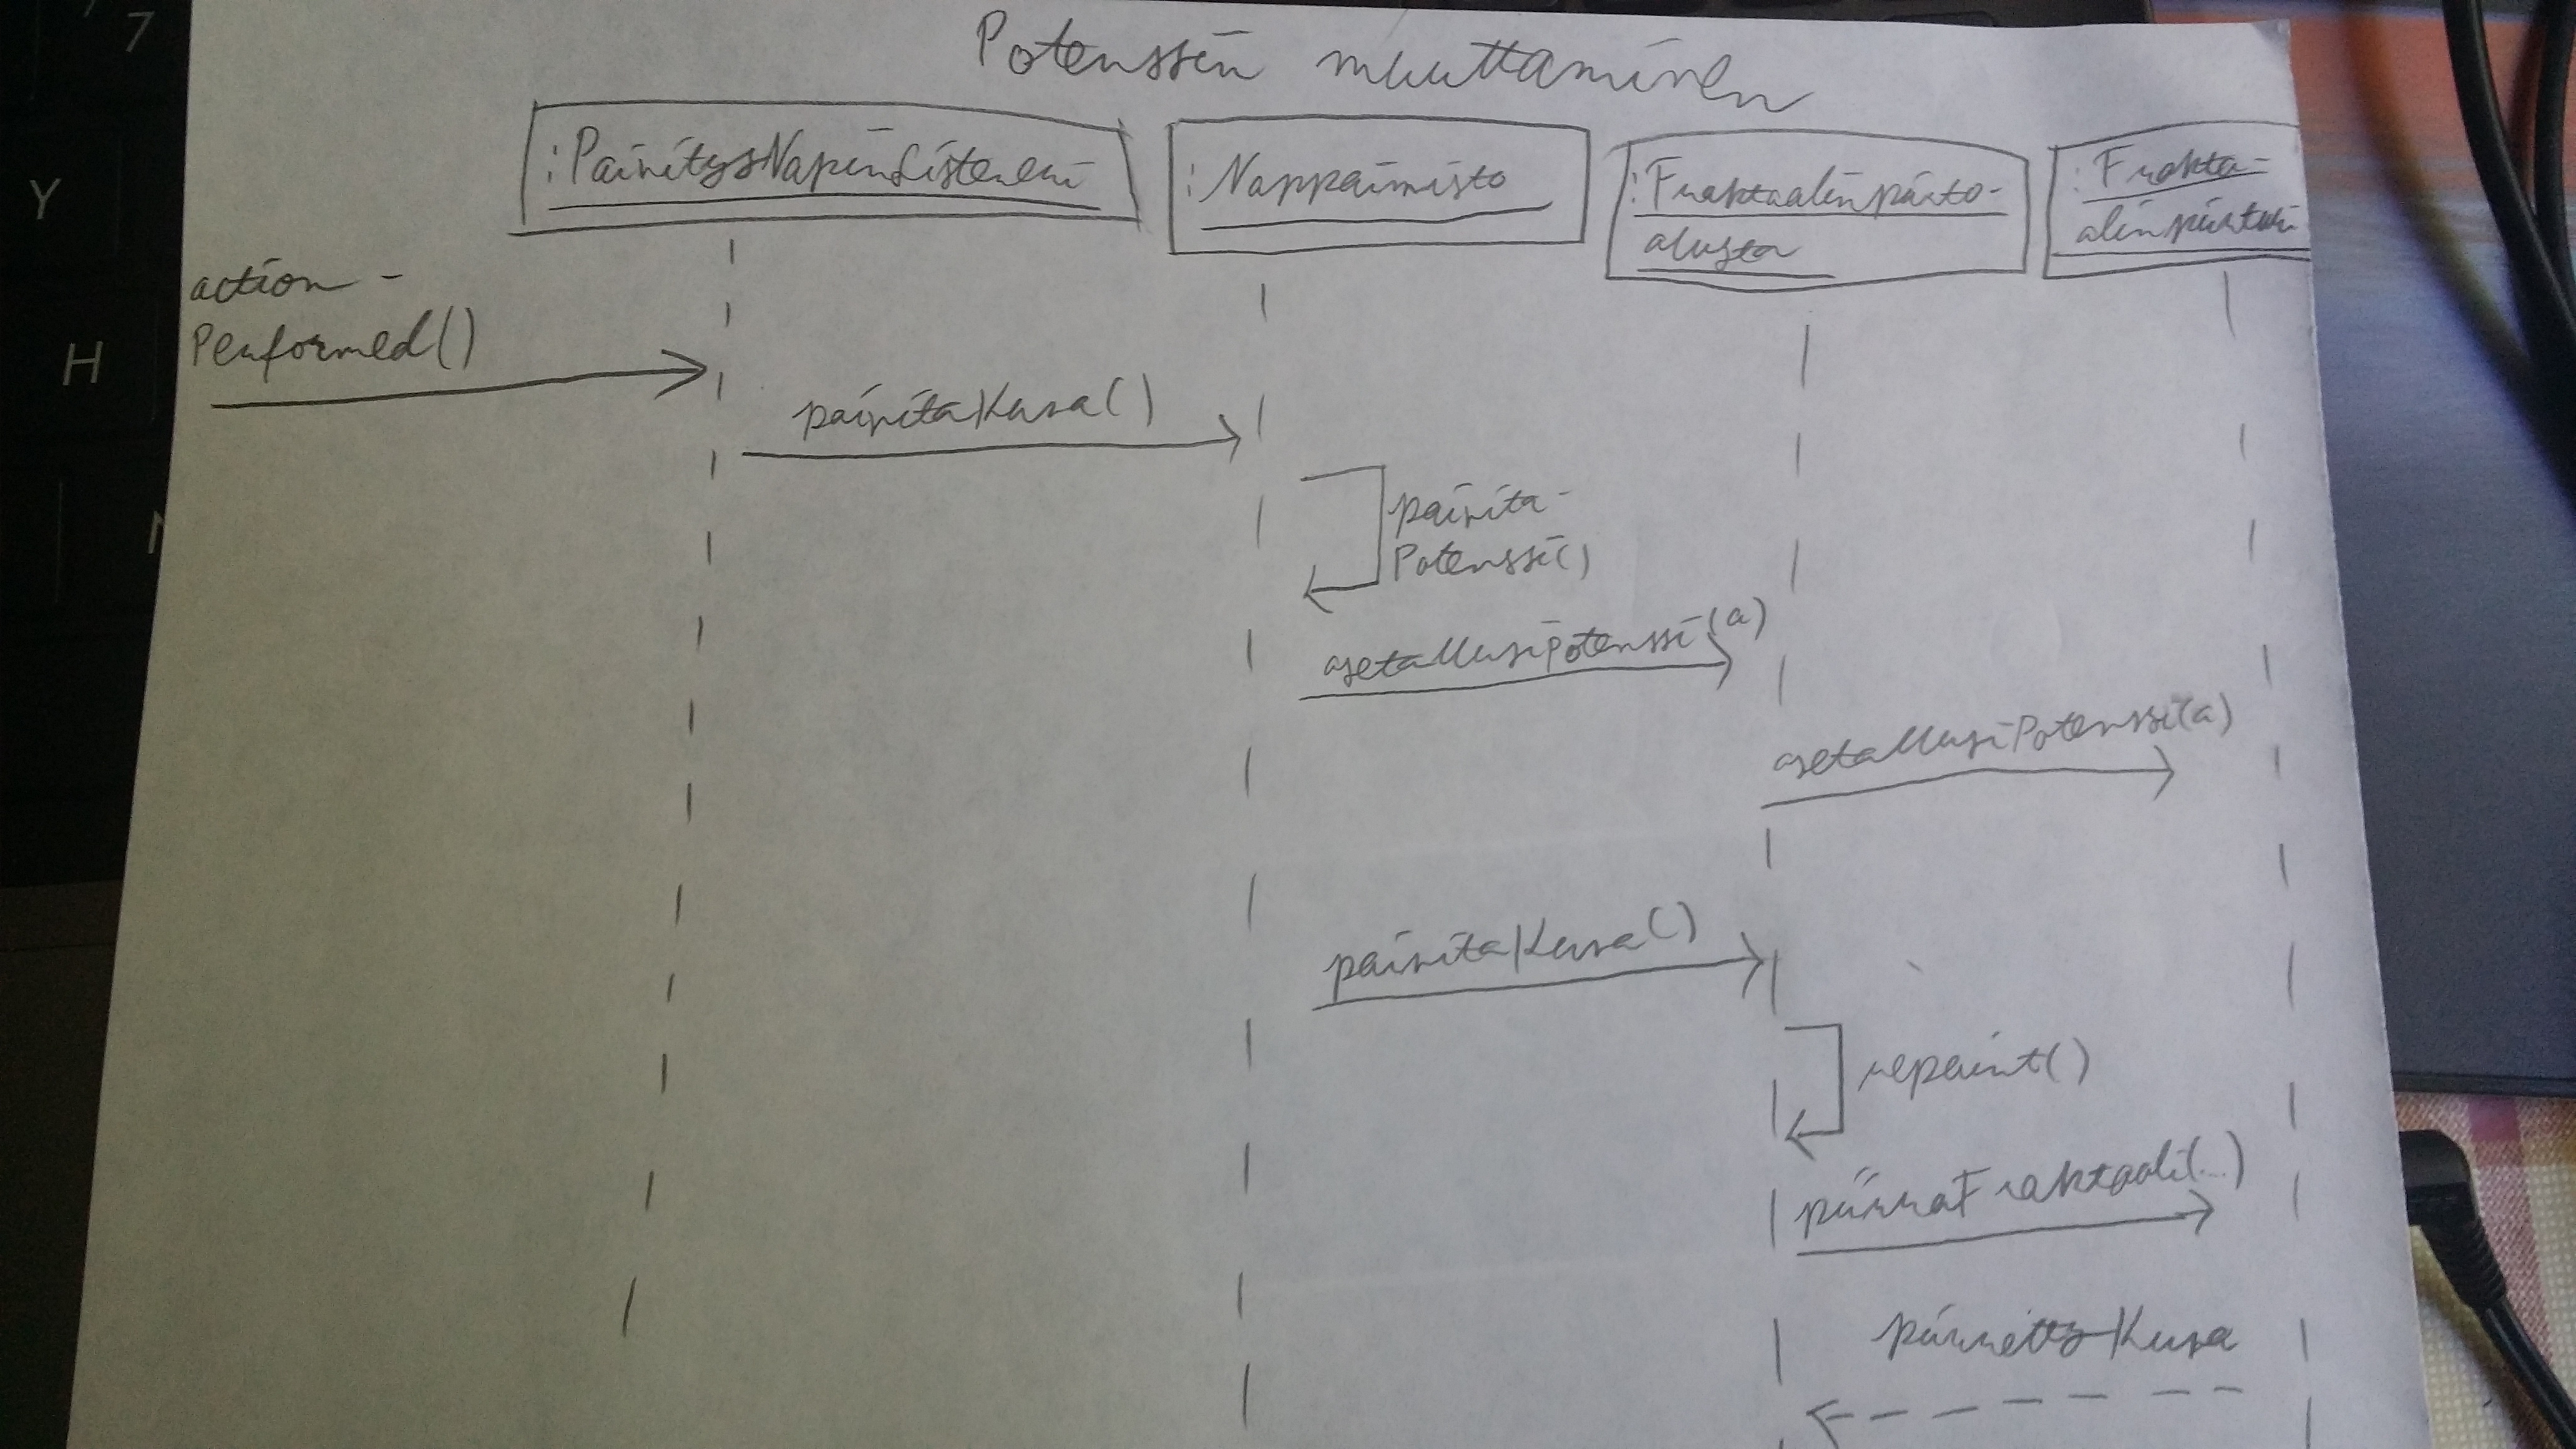 Potenssin muuttaminen
:PäivitysNapinListeneri
:Nappaimisto
:Fraktaalinpiirto-
alusta
:Frakta-
alinpiirturi
action-
Performed()
päivitäKuva()
päivitä-
Potenssi()
asetaUusiPotenssi(a)
asetaUusiPotenssi(a)
päivitäKuva()
repaint()
piirräFraktaali(...)
piirrettyKuva
7
Y
H
N